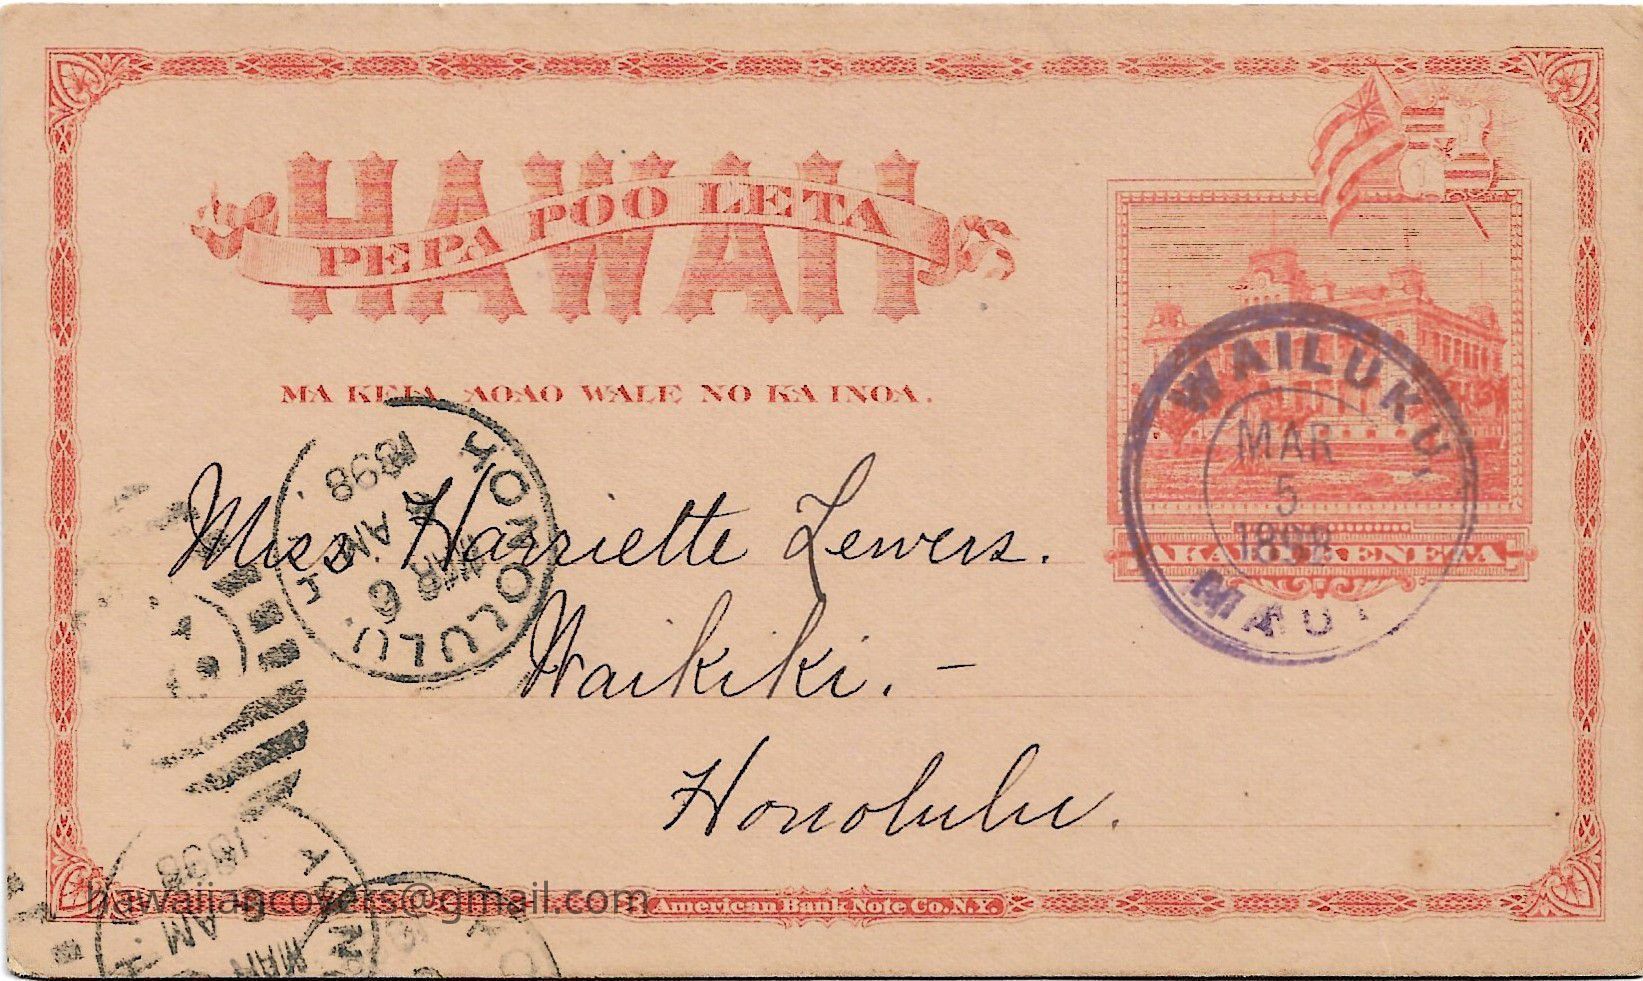 HAWAII
PEPA POO LETA
MA KEIA AOAO WALE NO KA INOA.
WAILUKU,
MAR
5
1898
MAUI
HONOLULU.
MAR 6
AM
1898
Miss Harriette Lewers.
Waikiki. –
Honolulu.
1898
AM
MAR
hawaiiancovers@gmail.com
American Bank Note Co. N.Y.